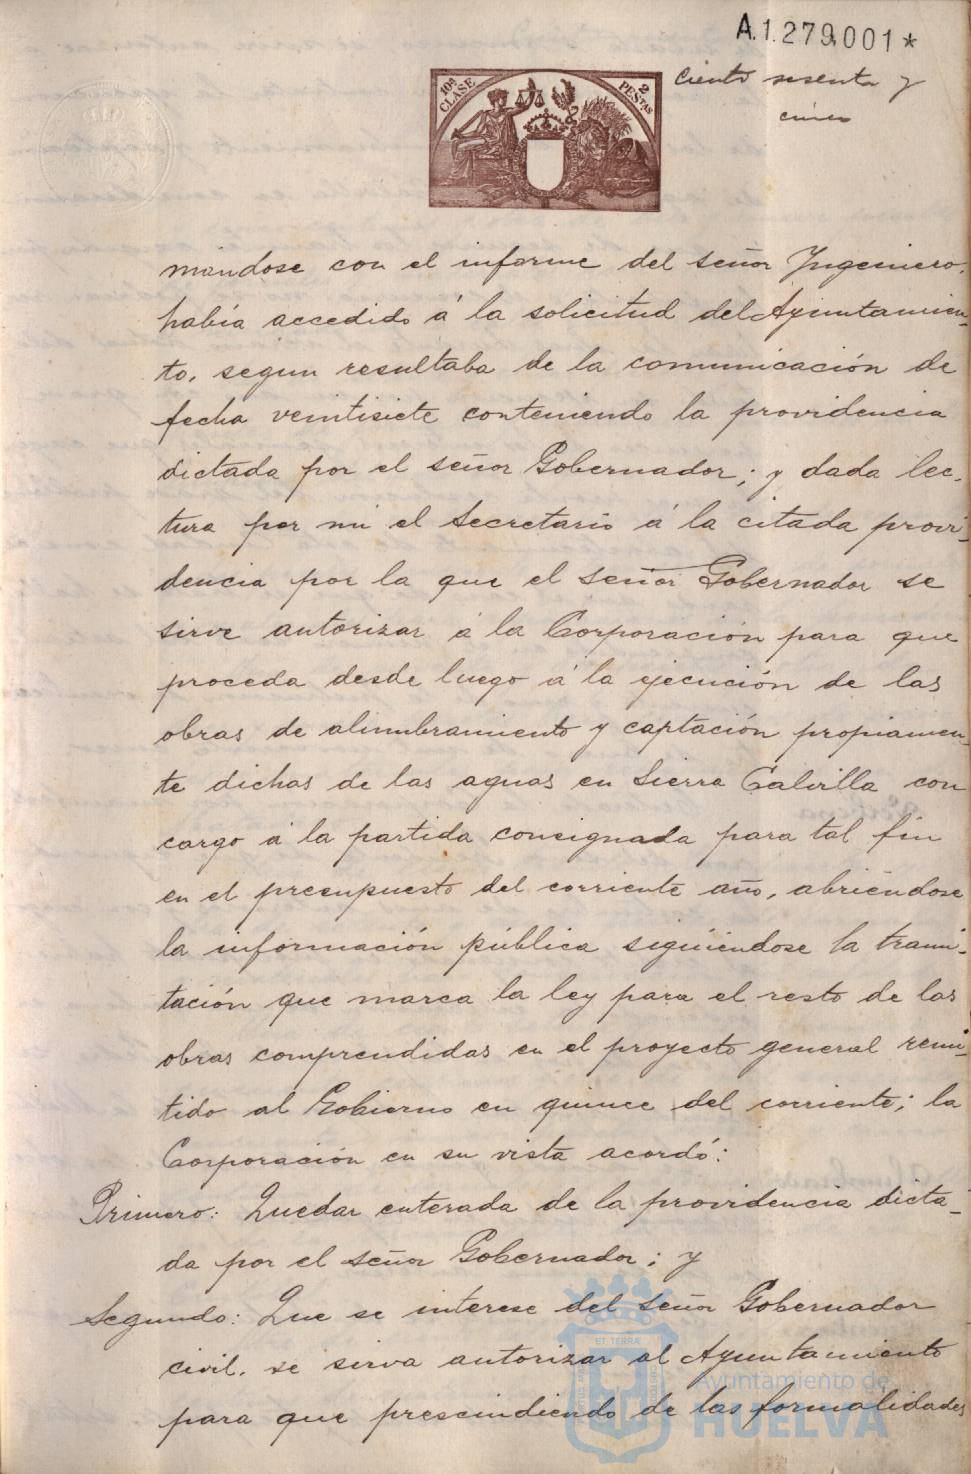 A.1.279.001*
10ª CLASE
2 PESTAS
ciento sesenta y
cinco
mándose con el informe del señor Yngeniero.
había accedido á la solicitud del Ayuntamien-
to, segun resultaba de la comunicación de
fecha veintisiete conteniendo la providencia
dictada por el señor Gobernador; y dada lec-
tura por mi el Secretario á la citada provi-
dencia por la que el señor Gobernador se
sirve autorizar á la Corporación para que
proceda desde luego á la ejecución de las
obras de alumbramiento y captación propiamen-
te dichas de las aguas en Sierra Calvilla con
cargo á la partida consignada para tal fin
en el presupuesto del corriente año, abriéndose
la información pública siguiéndose la trami-
tación que marca la ley para el resto de las
obras comprendidas en el proyecto general remi-
tido al Gobierno en quince del corriente; la
Corporación en su vista acordó:
Primero: Quedar enterada de la providencia dicta-
da por el señor Gobernador; y
Segundo: Que se interese del señor Gobernador
civil, se sirva autorizar al Ayuntamiento
para que prescindiendo de las formalidades
ET TERRA
Ayuntamiento de
HUELVA